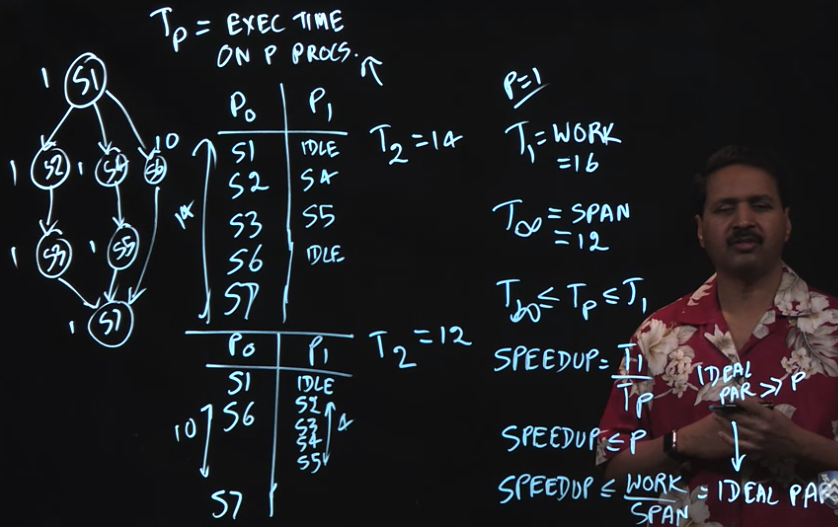 T_P = EXEC TIME
ON P PROCS.
1 S1
1 S2 1 S4 10 S6
1 S3 1 S5
1 S7
P0 P1
S1 IDLE
S2 S4
S3 S5
S6 IDLE
S7
14
T2 = 14
P0 P1
S1 IDLE
S6 S2
S3
S4
S5
S7
10 4
T2 = 12
P=1
T1 = WORK
= 16
T∞ = SPAN
= 12
T∞ ≤ TP ≤ T1
SPEEDUP = T1
TP
IDEAL
PAR >> P
SPEEDUP ≤ P
SPEEDUP ≤ WORK = IDEAL PAR
SPAN